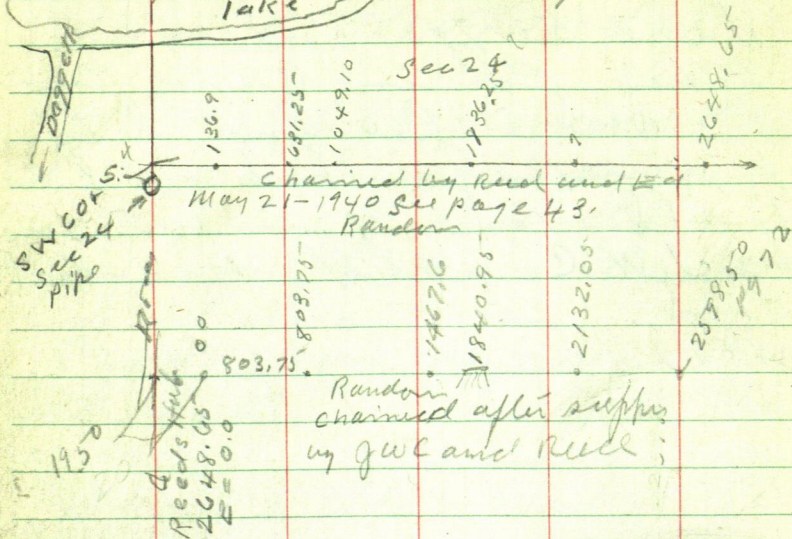 lake
Daggett
Sec 24
136.9
631.25
1049.10
1836.25
?
2648.65
5.4
SW Cor
Sec 24
pipe
Chained by Reed and Ed
May 21-1940 See page 43.
Random
803.75
1467.6
1840.95
2132.05
2598.50
+972
00
803.75
Random
chained after supper
by JWC and Reed
Reeds Hub
2648.65
E = 0.0
1950